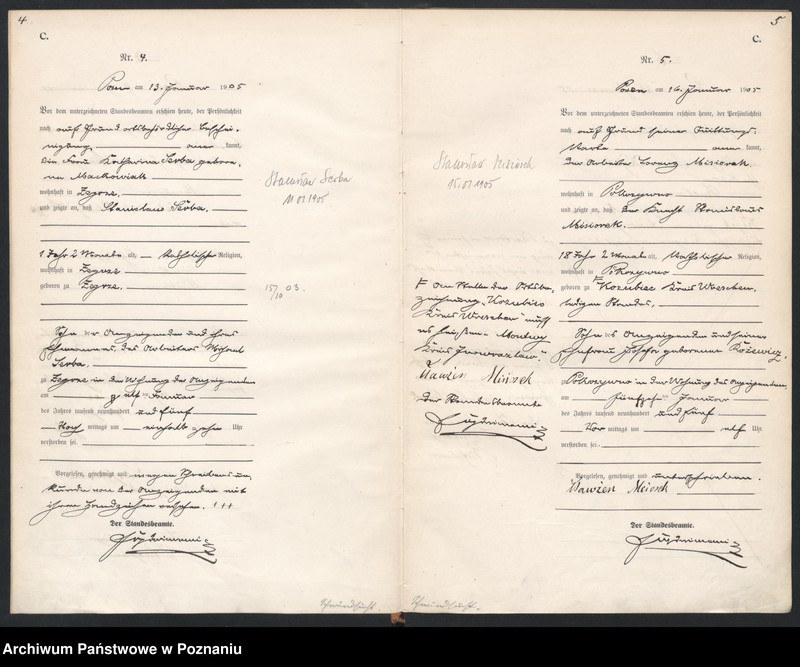 4
C.
Nr. 4.
Posen am 13. Januar 1905
Vor dem unterzeichneten Standesbeamten erschien heute, der Persönlichkeit
nach auf Grund ortsbehördlicher Beschei-
nigung, kannt,
die Frau Katharina Serba gebore-
ne Maćkowiak
wohnhaft in Zegrze,
und zeigte an, daß Stanislaus Serba,
1 Jahr 2 Monate alt, katholischer Religion,
wohnhaft in Zegrze
geboren zu Zegrze,
Sohn der Anzeigenden und ihres
Ehemannes, des Arbeiters Michael
Serba,
zu Zegrze in der Wohnung der Anzeigenden
am elften Januar
des Jahres tausend neunhundert und fünf
Nach mittags um einhalb zehn Uhr
verstorben sei.
Vorgelesen, genehmigt und wegen Schreibensun-
kunde von der Anzeigenden mit
ihrem Handzeichen versehen. +++
Der Standesbeamte.
Stanisław Serba
11.01.1905
15/10 03.
Schwindsucht.
5
C.
Nr. 5.
Posen am 16. Januar 1905
Vor dem unterzeichneten Standesbeamten erschien heute, der Persönlichkeit
nach auf Grund seiner Quittungs-
karte kannt,
der Arbeiter Lorenz Misiorek,
wohnhaft in Pokrzywno
und zeigte an, daß der Knecht Stanislaus
Misiorek,
18 Jahr 2 Monate alt, katholischer Religion,
wohnhaft in Pokrzywno
geboren zu Kozubiec Kreis Wreschen,
ledigen Standes,
Sohn des Anzeigenden und seiner
Ehefrau Josefa geborenen Kożewicz,
zu Pokrzywno in der Wohnung des Anzeigenden,
am fünfzehnten Januar
des Jahres tausend neunhundert und fünf
Vor mittags um elf Uhr
verstorben sei.
Vorgelesen, genehmigt und unterschrieben.
Wawżen Misiorek
Der Standesbeamte.
Stanisław Misiorek
15.01.1905
An Stelle der Ortsbe-
zeichnung "Kozubiec
Kreis Wreschen" muß
es heißen "Montwy
Kreis Inowrazlaw"
Wawżen Misiorek
Der Standesbeamte
Schwindsucht.
Archiwum Państwowe w Poznaniu